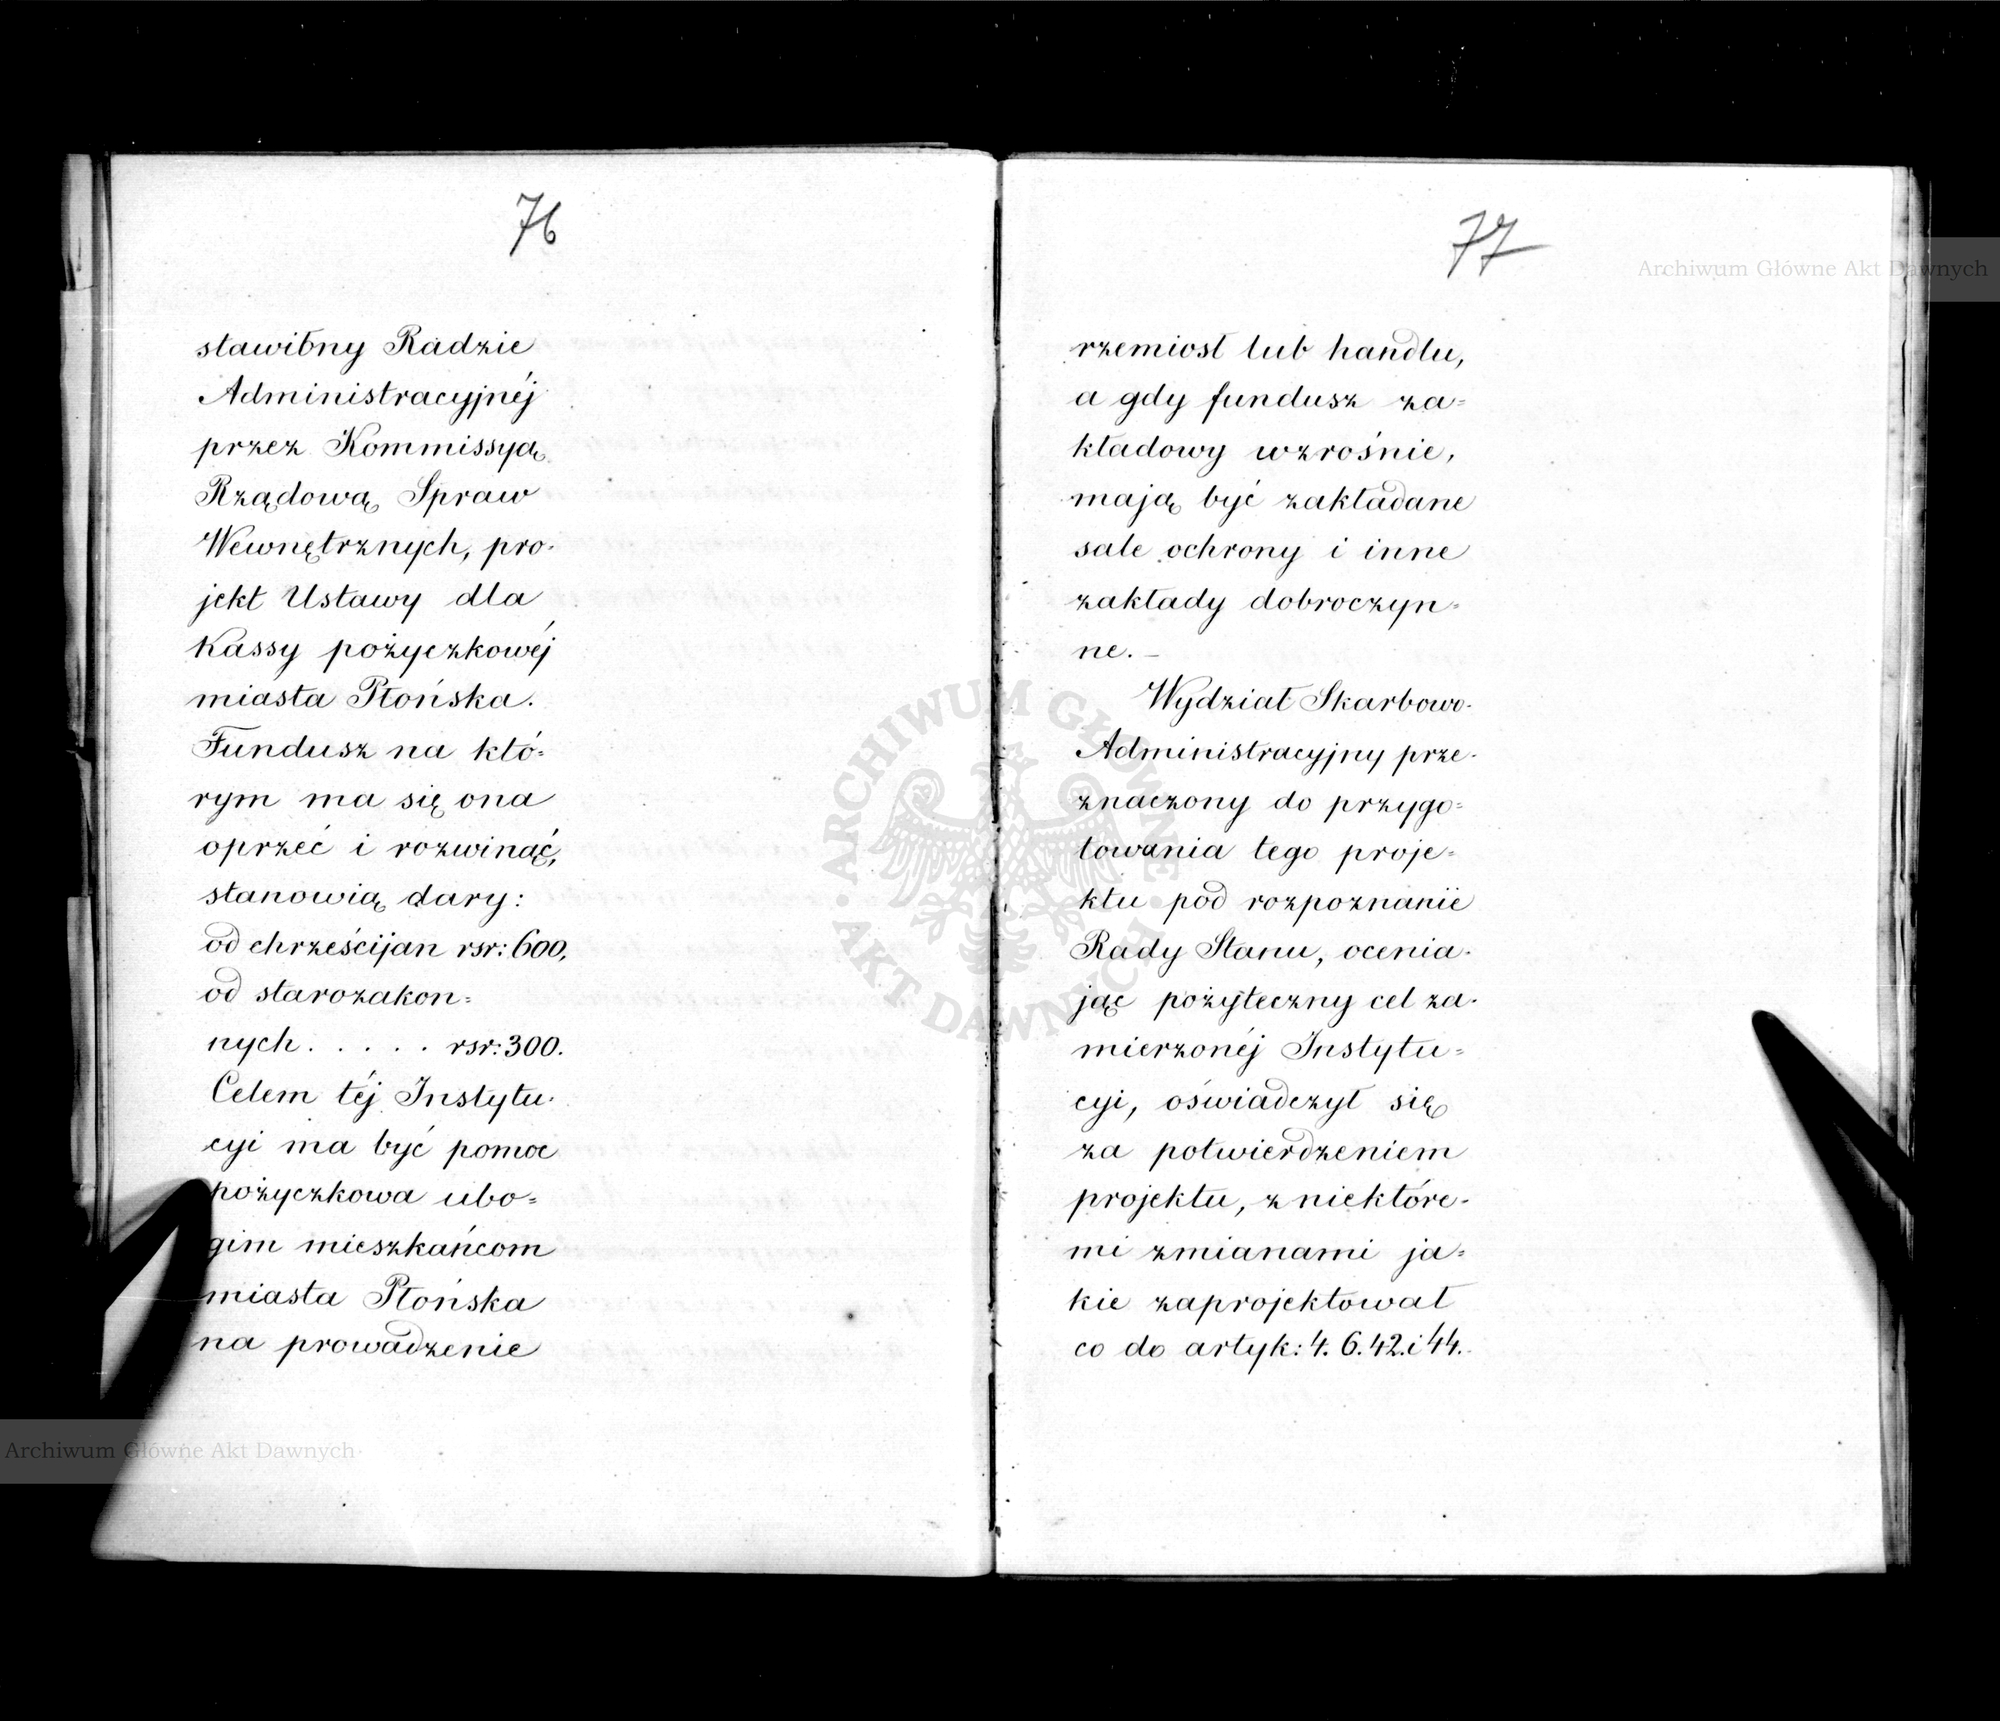 76
stawibny Radzie
Administracyjnéj
przez Kommissyą
Rządową Spraw
Wewnętrznych, pro-
jekt Ustawy dla
Kassy pożyczkowéj
miasta Płońska.
Fundusz na któ=
rym ma się ona
oprzeć i rozwinąć,
stanowią dary:
od chrześcijan rsr: 600,
od starozakon=
nych . . . . . rsr: 300.
Celem téj Instytu-
cyi ma być pomoc
pożyczkowa ubo=
gim mieszkańcom
miasta Płońska
na prowadzenie
77
rzemiosł lub handlu,
a gdy fundusz za=
kładowy wzrośnie,
mają być zakładane
sale ochrony i inne
zakłady dobroczyn=
ne. –
Wydział Skarbowo-
Administracyjny prze-
znaczony do przygo=
towania tego proje=
ktu pod rozpoznanie
Rady Stanu, ocenia-
jąc pożyteczny cel za-
mierzonéj Instytu=
cyi, oświadczył się
za potwierdzeniem
projektu, z niektóre-
mi zmianami ja=
kie zaprojektował
co do artyk: 4. 6. 42. i 44.
Archiwum Główne Akt Dawnych
ARCHIWUM GŁÓWNE • AKT DAWNYCH •
Archiwum Główne Akt Dawnych